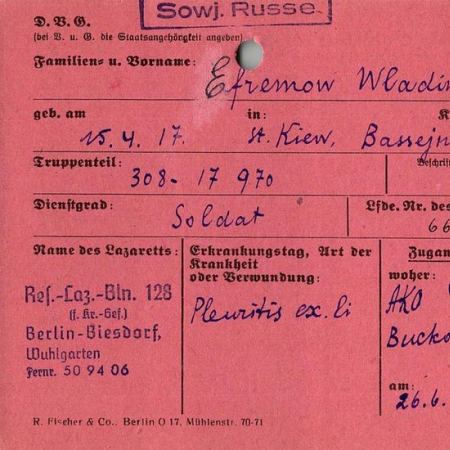 Sowj. Russe.
D. V. G.
(bei V. u. G. die Staatsangehörigkeit angeben)
Familien- u. Vorname: Efremow Wladi
geb. am in: K
15.4.17. St. Kiew, Bassejn
Truppenteil:
308- 17 970
Dienstgrad: Lfde. Nr. des
Soldat 66
Name des Lazaretts: Erkrankungstag, Art der Krankheit oder Verwundung: Zugan
woher:
Res.-Laz.-Bln. 128
(f. Kr.-Gef.)
Berlin-Biesdorf,
Wuhlgarten
Fernr. 50 94 06
Pleuritis ex. li
AKO
Bucko
am:
26.6.
R. Fischer & Co., Berlin O 17, Mühlenstr. 70-71